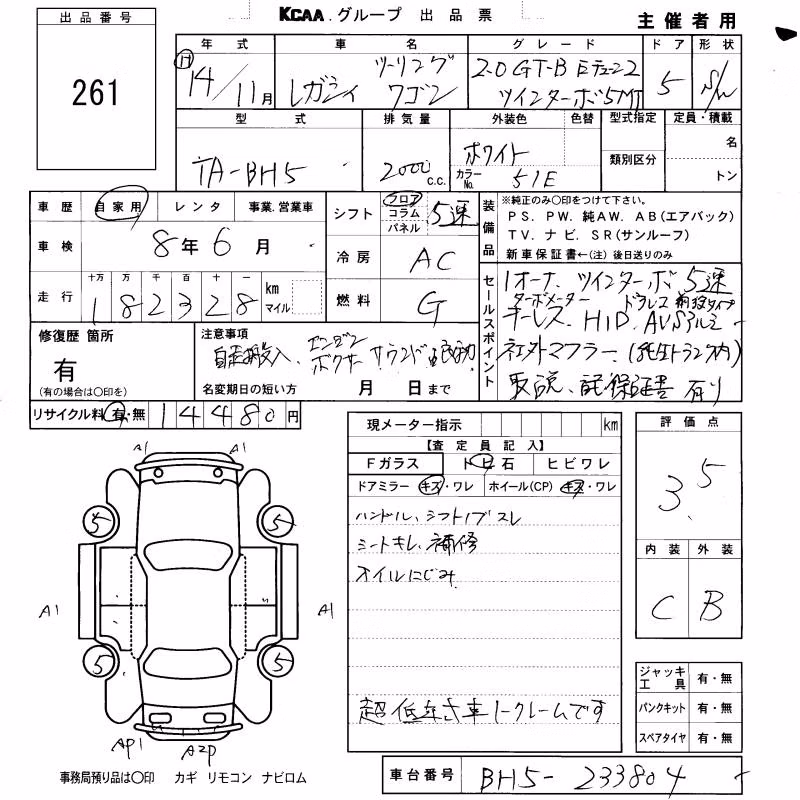 出品番号
261
KCAA.グループ 出品票
主催者用
年式 車名 グレード ドア 形状
H 14/11月
レガシィ
ツーリング
ワゴン
2.0GT-B Eチューン2
ツインターボ5MT
5
S/W
型式 排気量 外装色 色替 型式指定 定員・積載
TA-BH5
2000 c.c.
ホワイト
カラーNo. 51E
類別区分
名
トン
車歴 自家用 レンタ 事業.営業車
車検 8年6月
走行 十万 万 千 百 十 一
182328 km マイル
シフト フロア コラム パネル 5速
冷房 AC
燃料 G
装備品
※純正のみ〇印をつけて下さい。
PS. PW. 純AW. AB(エアバック)
TV. ナビ. SR(サンルーフ)
新車保証書←(注)後日送りのみ
セールスポイント
1オーナ、ツインターボ 5速
ターボメーター ドアレス
キーレス、HID、AVS アルミ
社外マフラー、(純正トランク内)
取説、記録保証書 有り
修復歴 箇所
有
(有の場合は〇印を)
注意事項
自走搬入、エンジン
ボクサーサウンド
名変期日の短い方 月 日まで
リサイクル料 有・無 14480円
現メーター指示 km
【査定員記入】
Fガラス トビ石 ヒビワレ
ドアミラー キズ・ワレ ホイール(CP) キズ・ワレ
ハンドル、シフトノブスレ
シートキレ、補修
オイルにじみ
超低年式車ノークレームです
評価点
3.5
内装 外装
C B
ジャッキ工具 有・無
パンクキット 有・無
スペアタイヤ 有・無
A1 A1
5 5
A1 A1
5 5
AP1 A2P
事務局預り品は〇印 カギ リモコン ナビロム
車台番号 BH5-233804